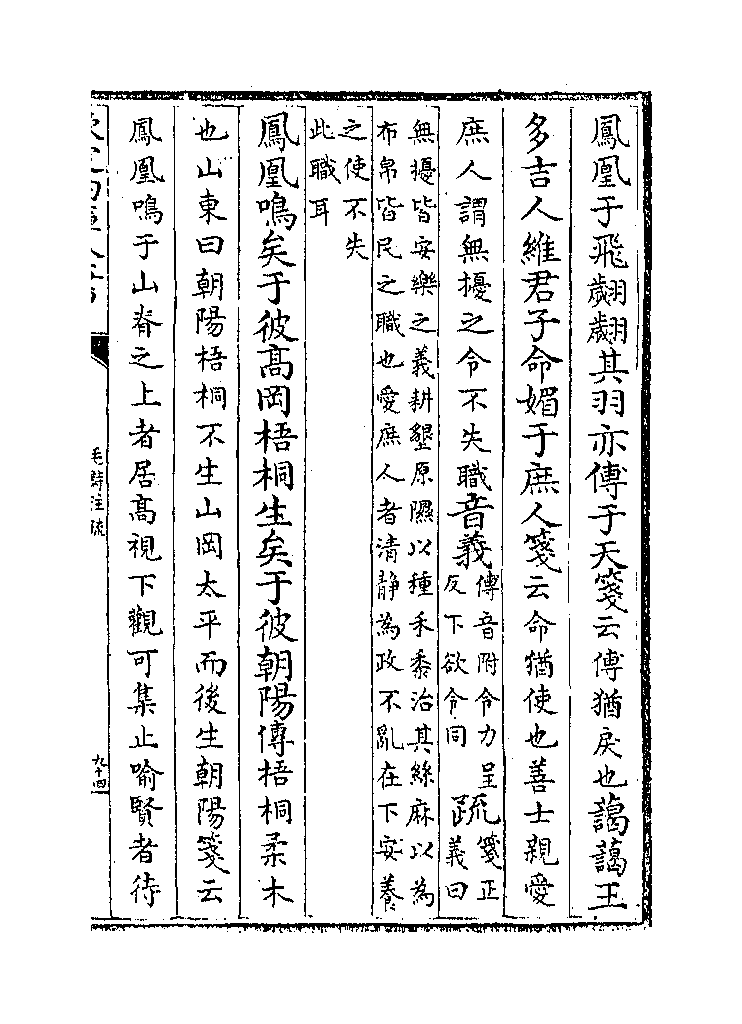 鳳凰于飛翽翽其羽亦傅于天箋云傅猶戾也藹藹王
多吉人維君子命媚于庶人箋云命猶使也善士親愛
庶人謂無擾之令不失職音義傅音附令力呈
反下欲令同
疏箋正
義曰
無擾皆安樂之義耕墾原隰以種禾黍治其絲麻以為
布帛皆民之職也愛庶人者清静為政不亂在下安養
之使不失
此職耳
鳳凰鳴矣于彼髙岡梧桐生矣于彼朝陽傳梧桐柔木
也山東曰朝陽梧桐不生山岡太平而後生朝陽箋云
鳳凰鳴于山脊之上者居髙視下觀可集止喻賢者待
毛詩注疏
九十四